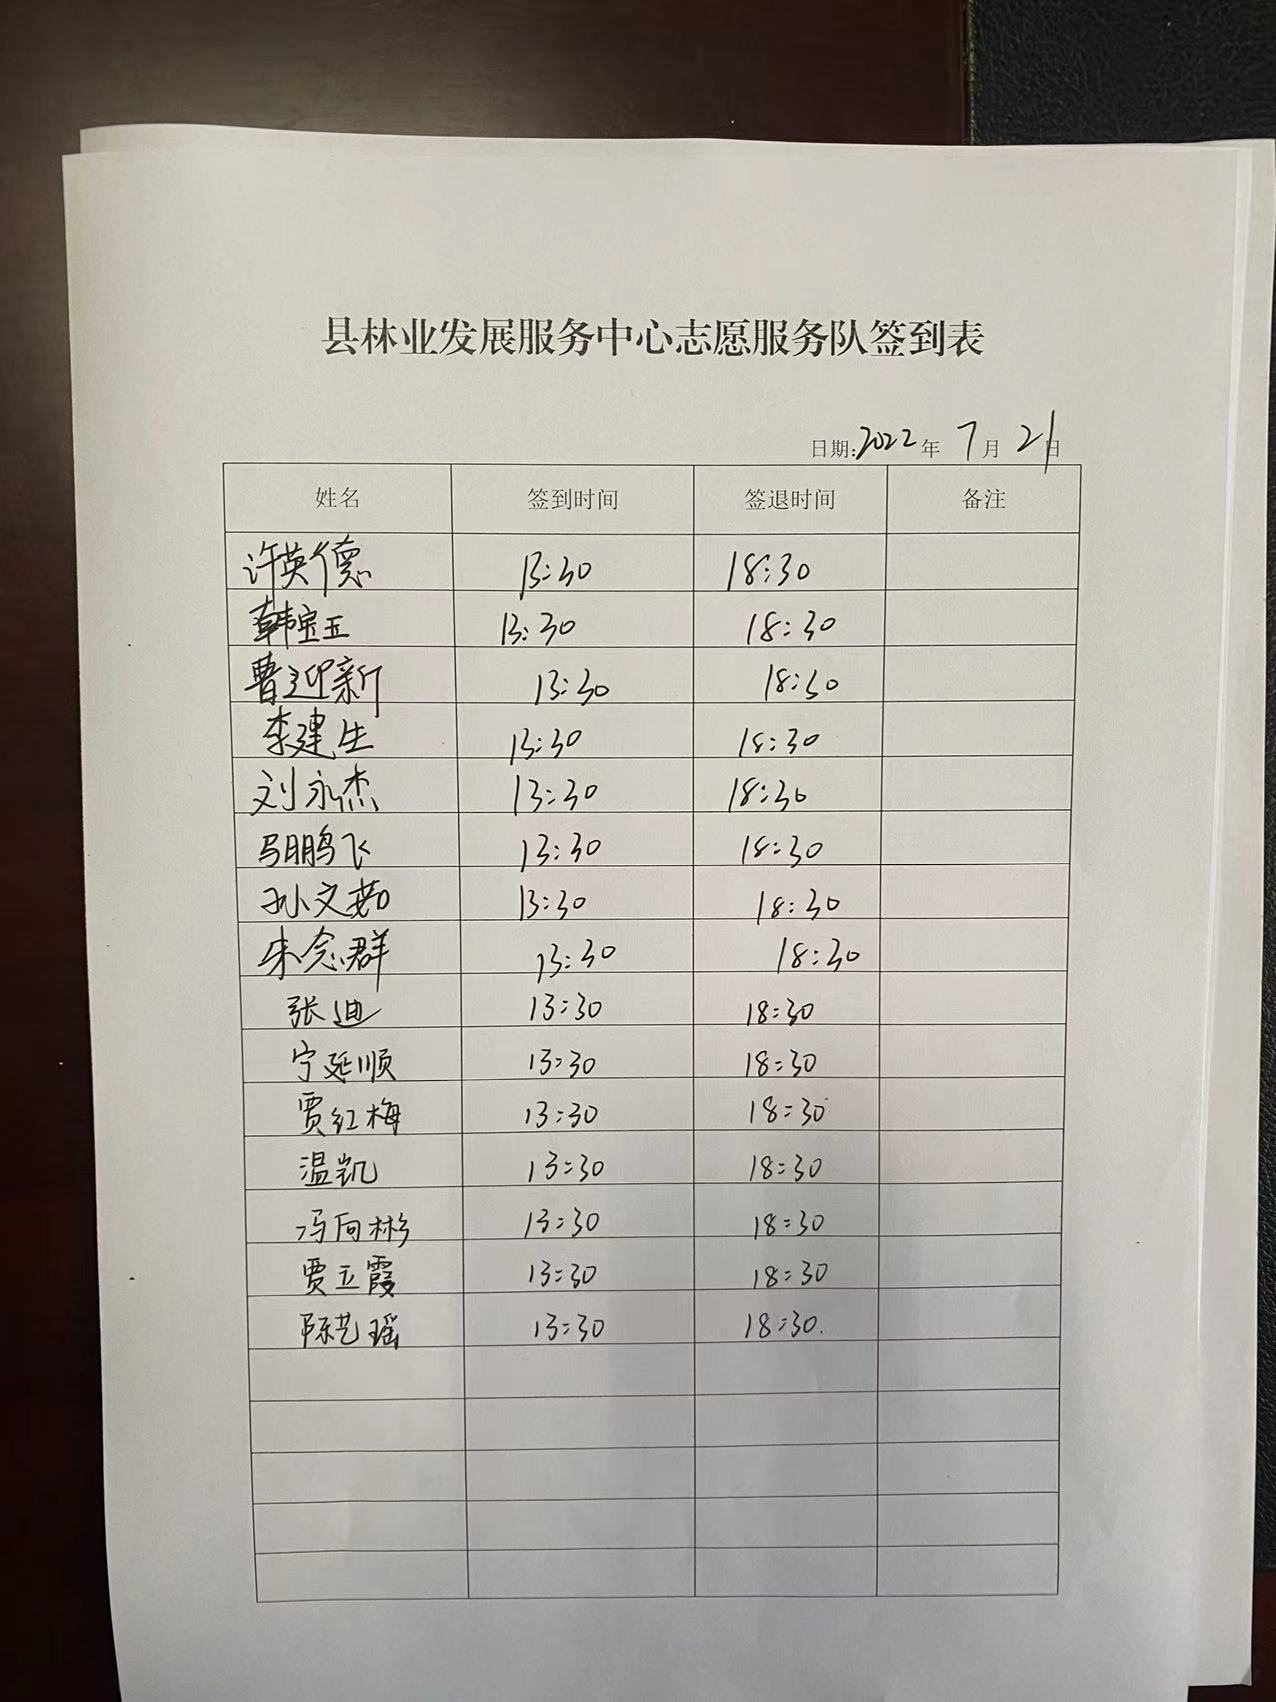 县林业发展服务中心志愿服务队签到表
日期:2022年 7月 21日
姓名 签到时间 签退时间 备注
许英德 13:30 18:30
韩宝玉 13:30 18:30
曹迎新 13:30 18:30
李建生 13:30 18:30
刘永杰 13:30 18:30
马鹏飞 13:30 18:30
孙文茹 13:30 18:30
朱念群 13:30 18:30
张迪 13:30 18:30
宁延顺 13:30 18:30
贾红梅 13:30 18:30
温凯 13:30 18:30
冯向彬 13:30 18:30
贾立霞 13:30 18:30
陈艺瑶 13:30 18:30.